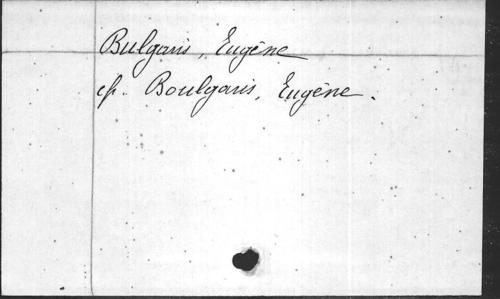 Bulgaris, Eugène
cf. Boulgaris, Eugène.